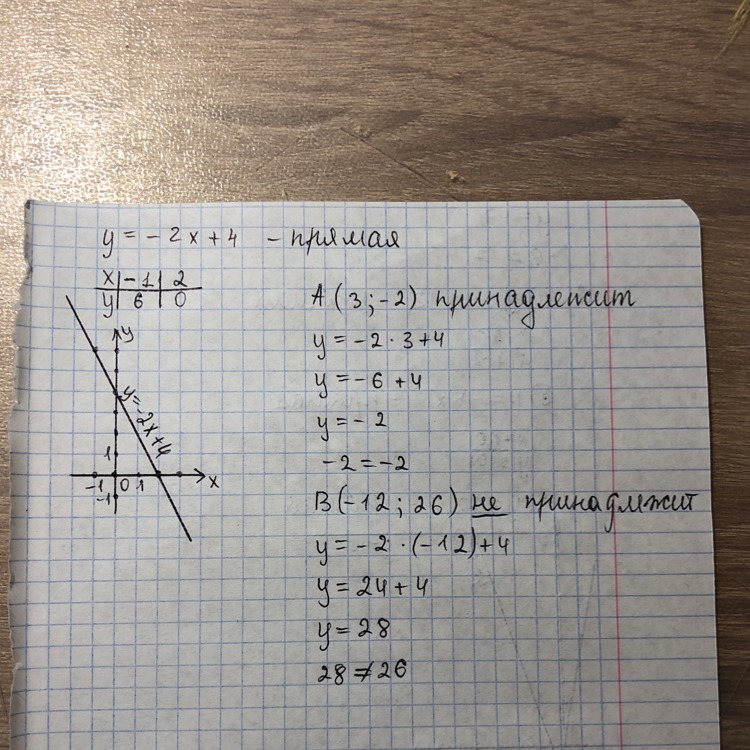 y = -2x+4 - прямая
x | -1 | 2
y | 6 | 0
y
y=-2x+4
1
-1 0 1 x
-1
A (3; -2) принадлежит
y = -2 · 3+4
y = -6 +4
y = - 2
-2 = -2
B (-12; 26) не принадлежит
y = -2 · (-12)+4
y = 24 + 4
y = 28
28 ≠ 26